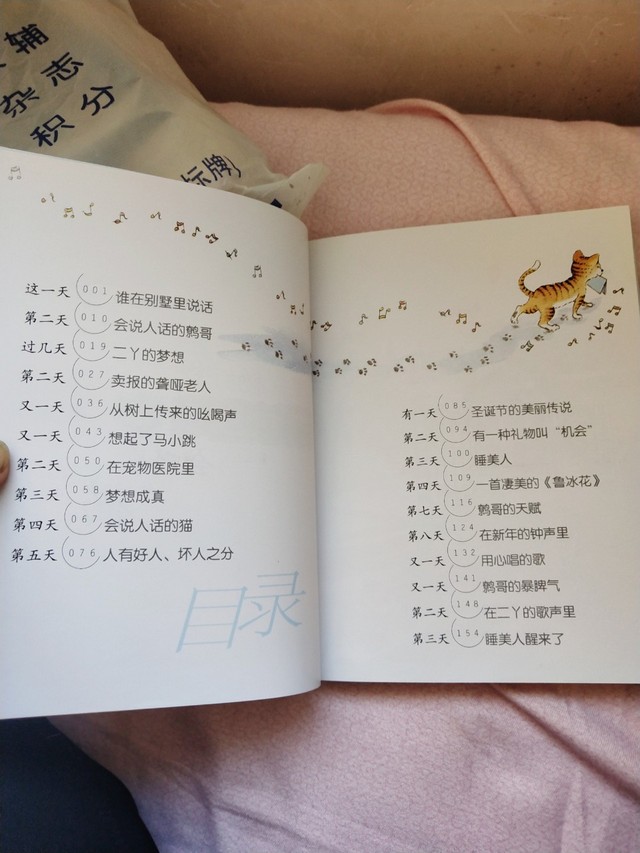 辅
杂志
积分
标牌)
这一天 001 谁在别墅里说话
第二天 010 会说人话的鹩哥
过几天 019 二丫的梦想
第二天 027 卖报的聋哑老人
又一天 036 从树上传来的吆喝声
又一天 043 想起了马小跳
第二天 050 在宠物医院里
第三天 058 梦想成真
第四天 067 会说人话的猫
第五天 076 人有好人、坏人之分
目录
有一天 085 圣诞节的美丽传说
第二天 094 有一种礼物叫“机会”
第三天 100 睡美人
第四天 109 一首凄美的《鲁冰花》
第七天 116 鹩哥的天赋
第八天 124 在新年的钟声里
又一天 132 用心唱的歌
又一天 141 鹩哥的暴脾气
第二天 148 在二丫的歌声里
第三天 154 睡美人醒来了